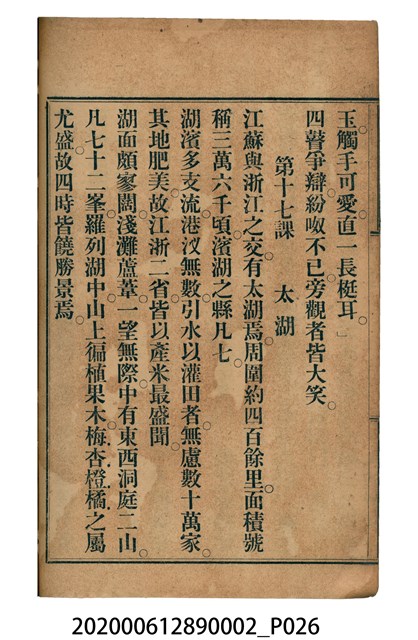 玉觸手可愛。直一長梃耳。」
四瞽爭辯。紛呶不已。旁觀者皆大笑。
第十七課　太湖
江蘇與浙江之交。有太湖焉。周圍約四百餘里。面積號
稱三萬六千頃。濱湖之縣凡七。
湖濱多支流。港汊無數。引水以灌田者。無慮數十萬家。
其地肥美。故江浙二省。皆以產米最盛聞。
湖面頗寥闊。淺灘蘆葦。一望無際。中有東西洞庭二山。
凡七十二峯。羅列湖中。山上徧植果木。梅、杏、橙、橘之屬
尤盛。故四時皆饒勝景焉。
202000612890002_P026